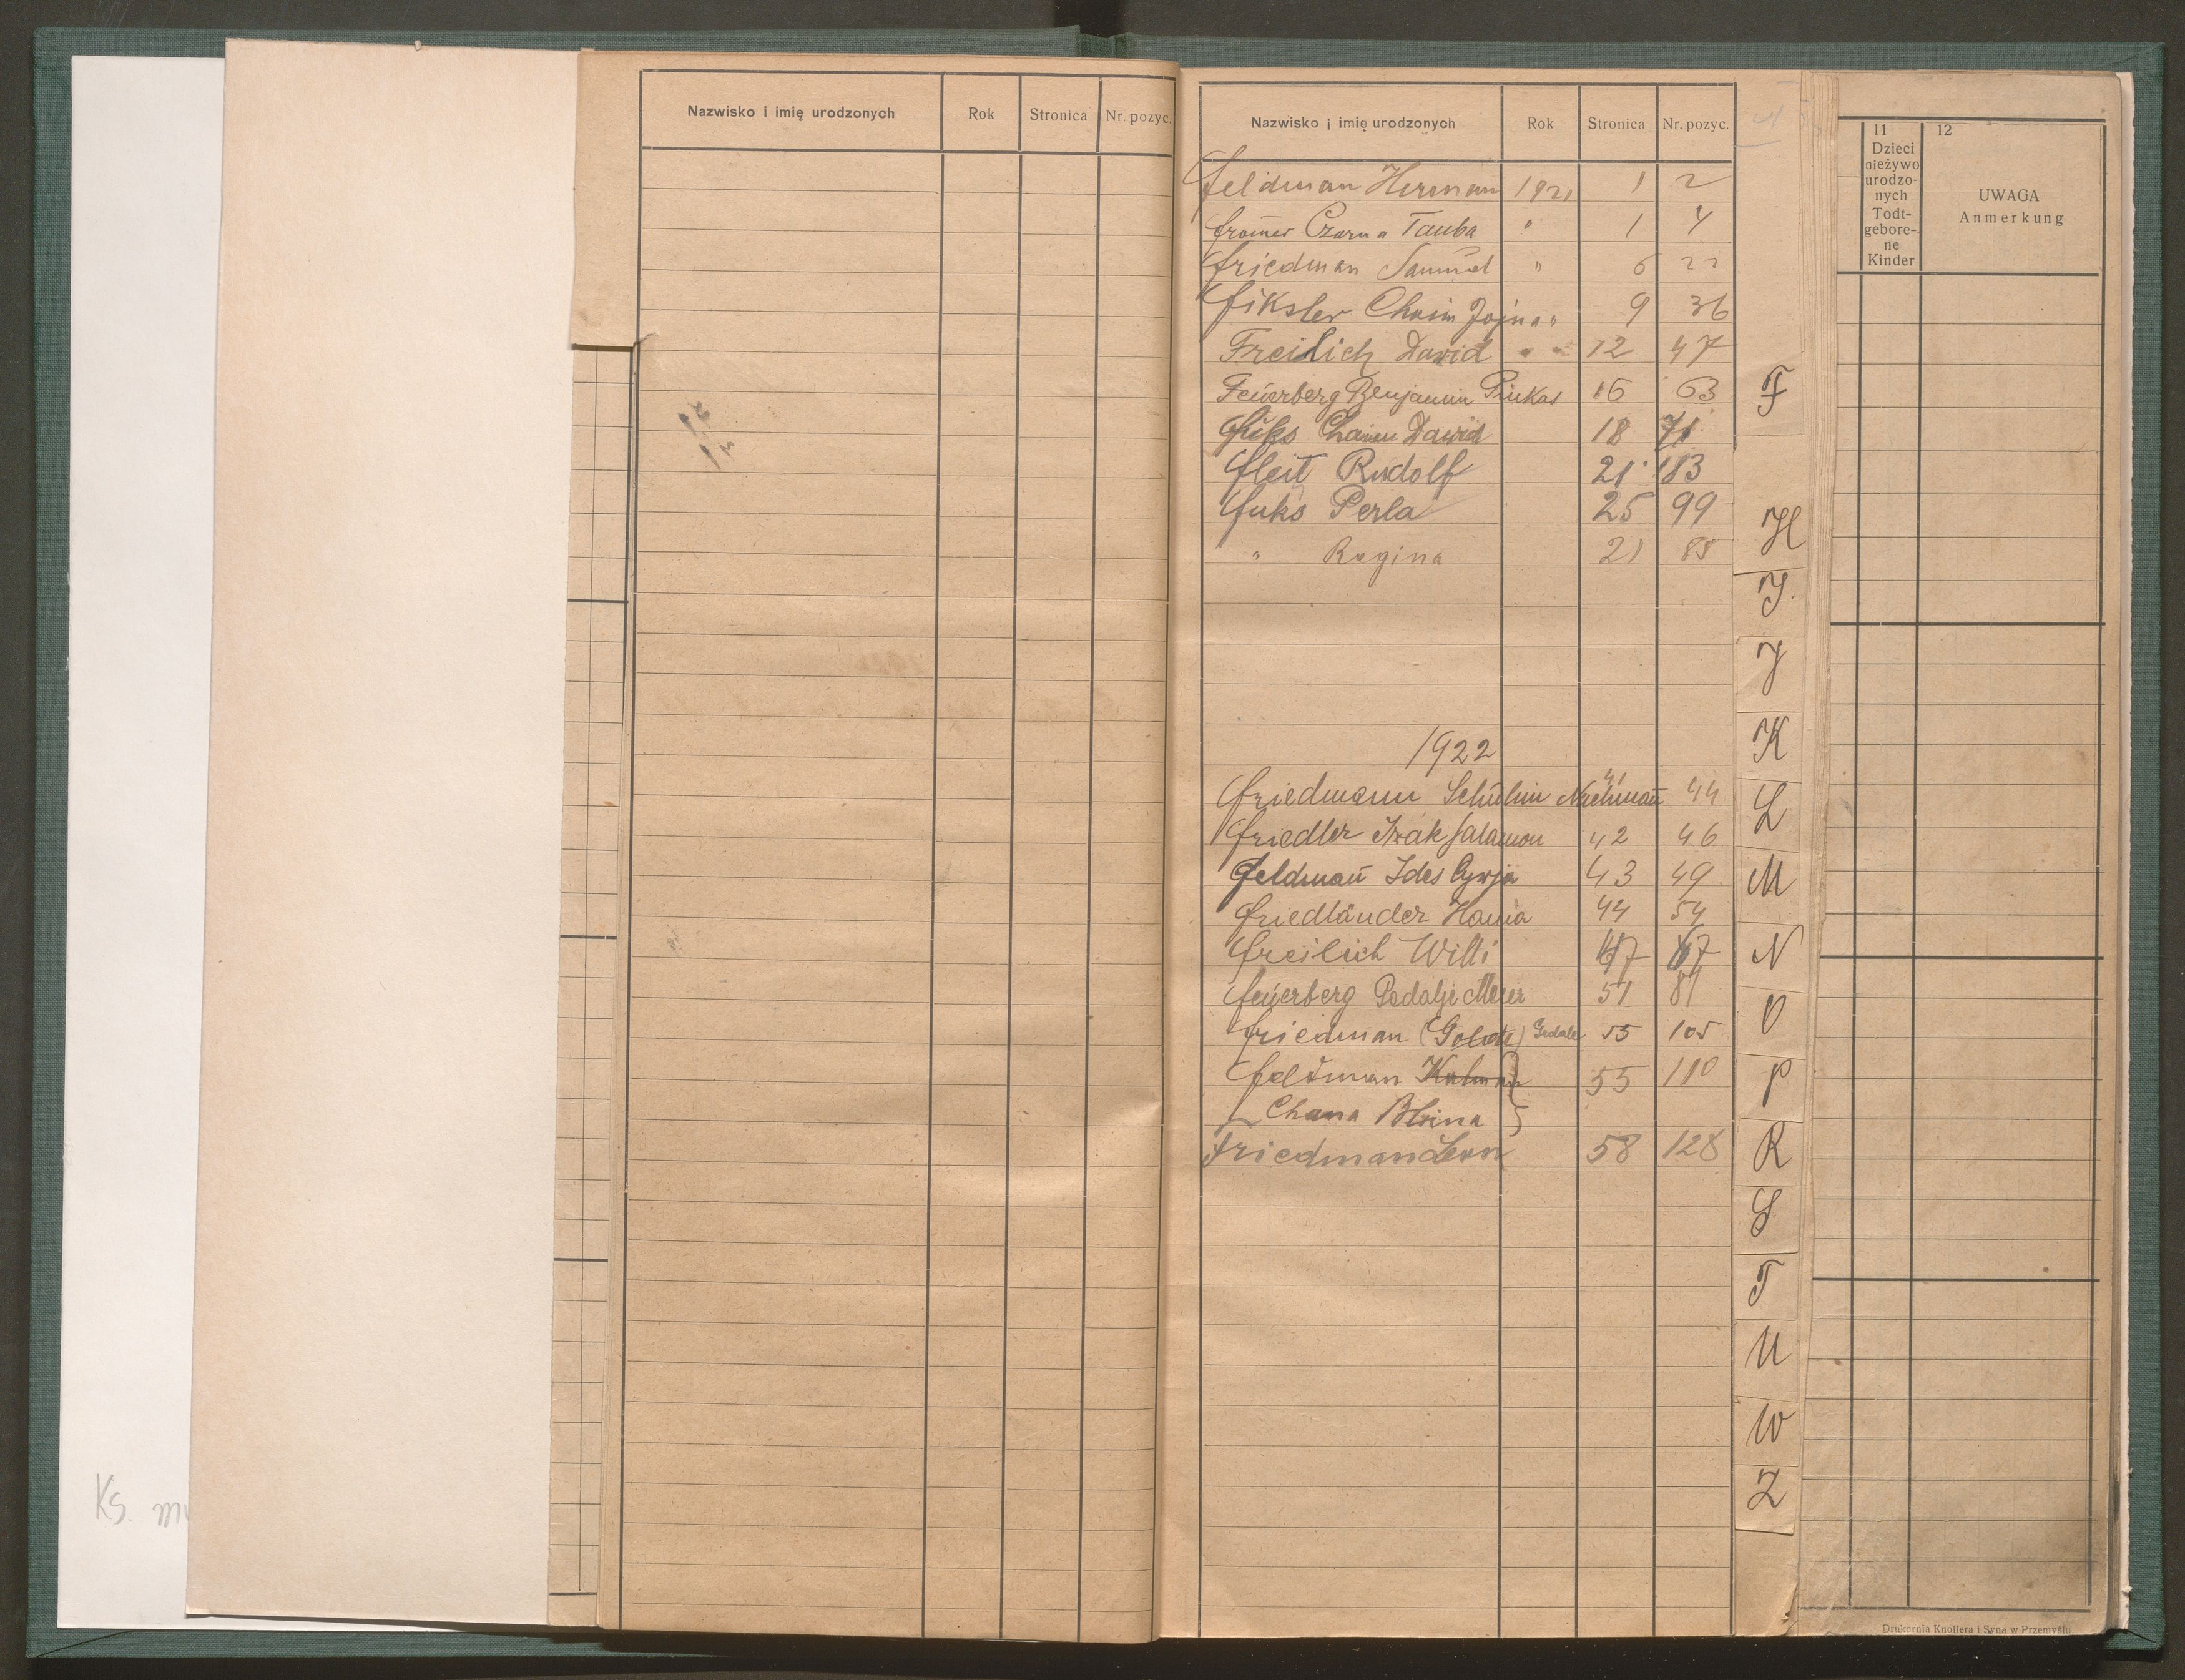 Nazwisko i imię urodzonych Rok Stronica Nr. pozyc.
Nazwisko i imię urodzonych Rok Stronica Nr. pozyc.
Feldman Herman 1921 1 2
Fromer Czarna Tauba " 1 4
Friedman Samuel " 6 22
Fiksler Chaim Jojna " 9 36
Freilich Dawid " " 12 47
Feuerberg Benjamin Pinkas 16 63
Fuks Chaim Dawid 18 71
Fleit Rudolf 21 83
Fuks Perla 25 99
" Regina 21 85
1922
Friedmann Schulim Nachman 41 44
Friedler Izak Salamon 42 46
Feldman Ides Cywja 43 49
Friedländer Hania 44 54
Freilich Willi 47 67
Feuerberg Pedalje Meier 51 81
Friedman (Golde) Gedale 55 105
Feldman Kalman 55 110
Chana Blima
Friedman Leon 58 128
F
H
I
J
K
L
M
N
O
P
R
S
T
U
W
Z
11
Dzieci
nieżywo
urodzo-
nych
Todt-
gebore-
ne
Kinder
12
UWAGA
Anmerkung
Drukarnia Knollera i Syna w Przemyślu.
Ks.